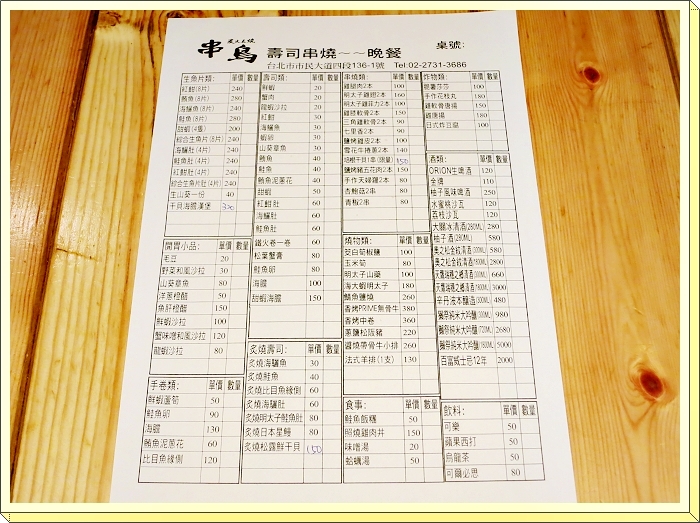 串鳥
壽司串燒～～晚餐
桌號：
台北市市民大道四段136-1號 Tel:02-2731-3686
生魚片類： 單價 數量
紅魽(8片) 240
鮪魚(8片) 280
海鱺魚(8片) 240
鮭魚(8片) 200
甜蝦(4隻) 200
綜合生魚片(8片) 240
海鱺肚(4片) 240
鮭魚肚(4片) 240
紅魽肚(4片) 240
綜合生魚片肚(4片) 240
生山葵一份 40
干貝海膽漢堡
開胃小品： 單價 數量
毛豆 20
野菜和風沙拉 30
山葵章魚 80
洋蔥橙醋 50
魚肝橙醋 150
鮮蝦沙拉 100
蟹味噌和風沙拉 120
龍蝦沙拉 80
手卷類： 單價 數量
鮮蝦蘆筍 50
鮭魚卵 90
海膽 130
鮪魚泥蔥花 60
比目魚緣側 120
壽司類： 單價 數量
鮮蝦 20
蟹肉 20
龍蝦沙拉 20
紅魽 30
海鱺魚 30
蝦卵 30
山葵章魚 30
鮪魚 40
鮭魚 40
鮪魚泥蔥花 40
甜蝦 50
紅魽肚 60
海鱺肚 60
鮭魚肚 60
鐵火卷一卷 60
松葉蟹膏 80
鮭魚卵 80
海膽 100
甜蝦海膽 150
炙燒壽司： 單價 數量
炙燒海鱺魚 30
炙燒鮭魚 40
炙燒比目魚緣側 60
炙燒海鱺肚 60
炙燒明太子鮭魚肚 80
炙燒日本星鰻 80
炙燒松露鮮干貝 150
串燒類： 單價 數量
雞腿肉2本 100
明太子雞翅2本 160
明太子雞菲力2本 100
雞膝軟骨2本 90
三角雞軟骨2本 90
七里香2本 90
鹽烤雞皮2本 100
雪花牛捲蔥2本 140
培根干貝1串(限量) 150
鹽烤豬五花肉2本 150
手作天婦羅2本 80
杏鮑菇2串 80
青椒2串 80
燒物類： 單價 數量
茭白筍椒鹽 100
玉米筍 80
明太子山藥 100
海大蝦明太子 180
鯖魚鹽燒 260
香烤PRIME無骨牛 380
香烤中卷 360
蔥鹽松阪豬 220
醬燒帶骨牛小排 260
法式羊排(1支) 130
食事： 單價 數量
鮭魚飯糰 50
照燒雞肉丼 150
味噌湯 20
蛤蠣湯 50
炸物類： 單價 數量
脆薯莎莎 100
手作花枝丸 180
雞軟骨唐揚 150
雞唐揚 180
日式炸豆腐 100
酒類： 單價 數量
ORION生啤酒 120
金牌 110
柚子風味啤酒 250
水蜜桃沙瓦 120
荔枝沙瓦 120
大關冰清酒(280ML) 280
柚子酒(280ML) 580
奧之松金紋清酒(300ML) 580
奧之松金紋清酒(1800ML) 2800
660
3000
辛丹波本釀造(300ML) 480
獺祭純米大吟釀(300ML) 980
獺祭純米大吟釀(720ML) 2680
獺祭純米大吟釀(1800ML) 5000
百富威士忌12年 2000
飲料： 單價 數量
可樂 50
蘋果西打 50
烏龍茶 50
可爾必思 80